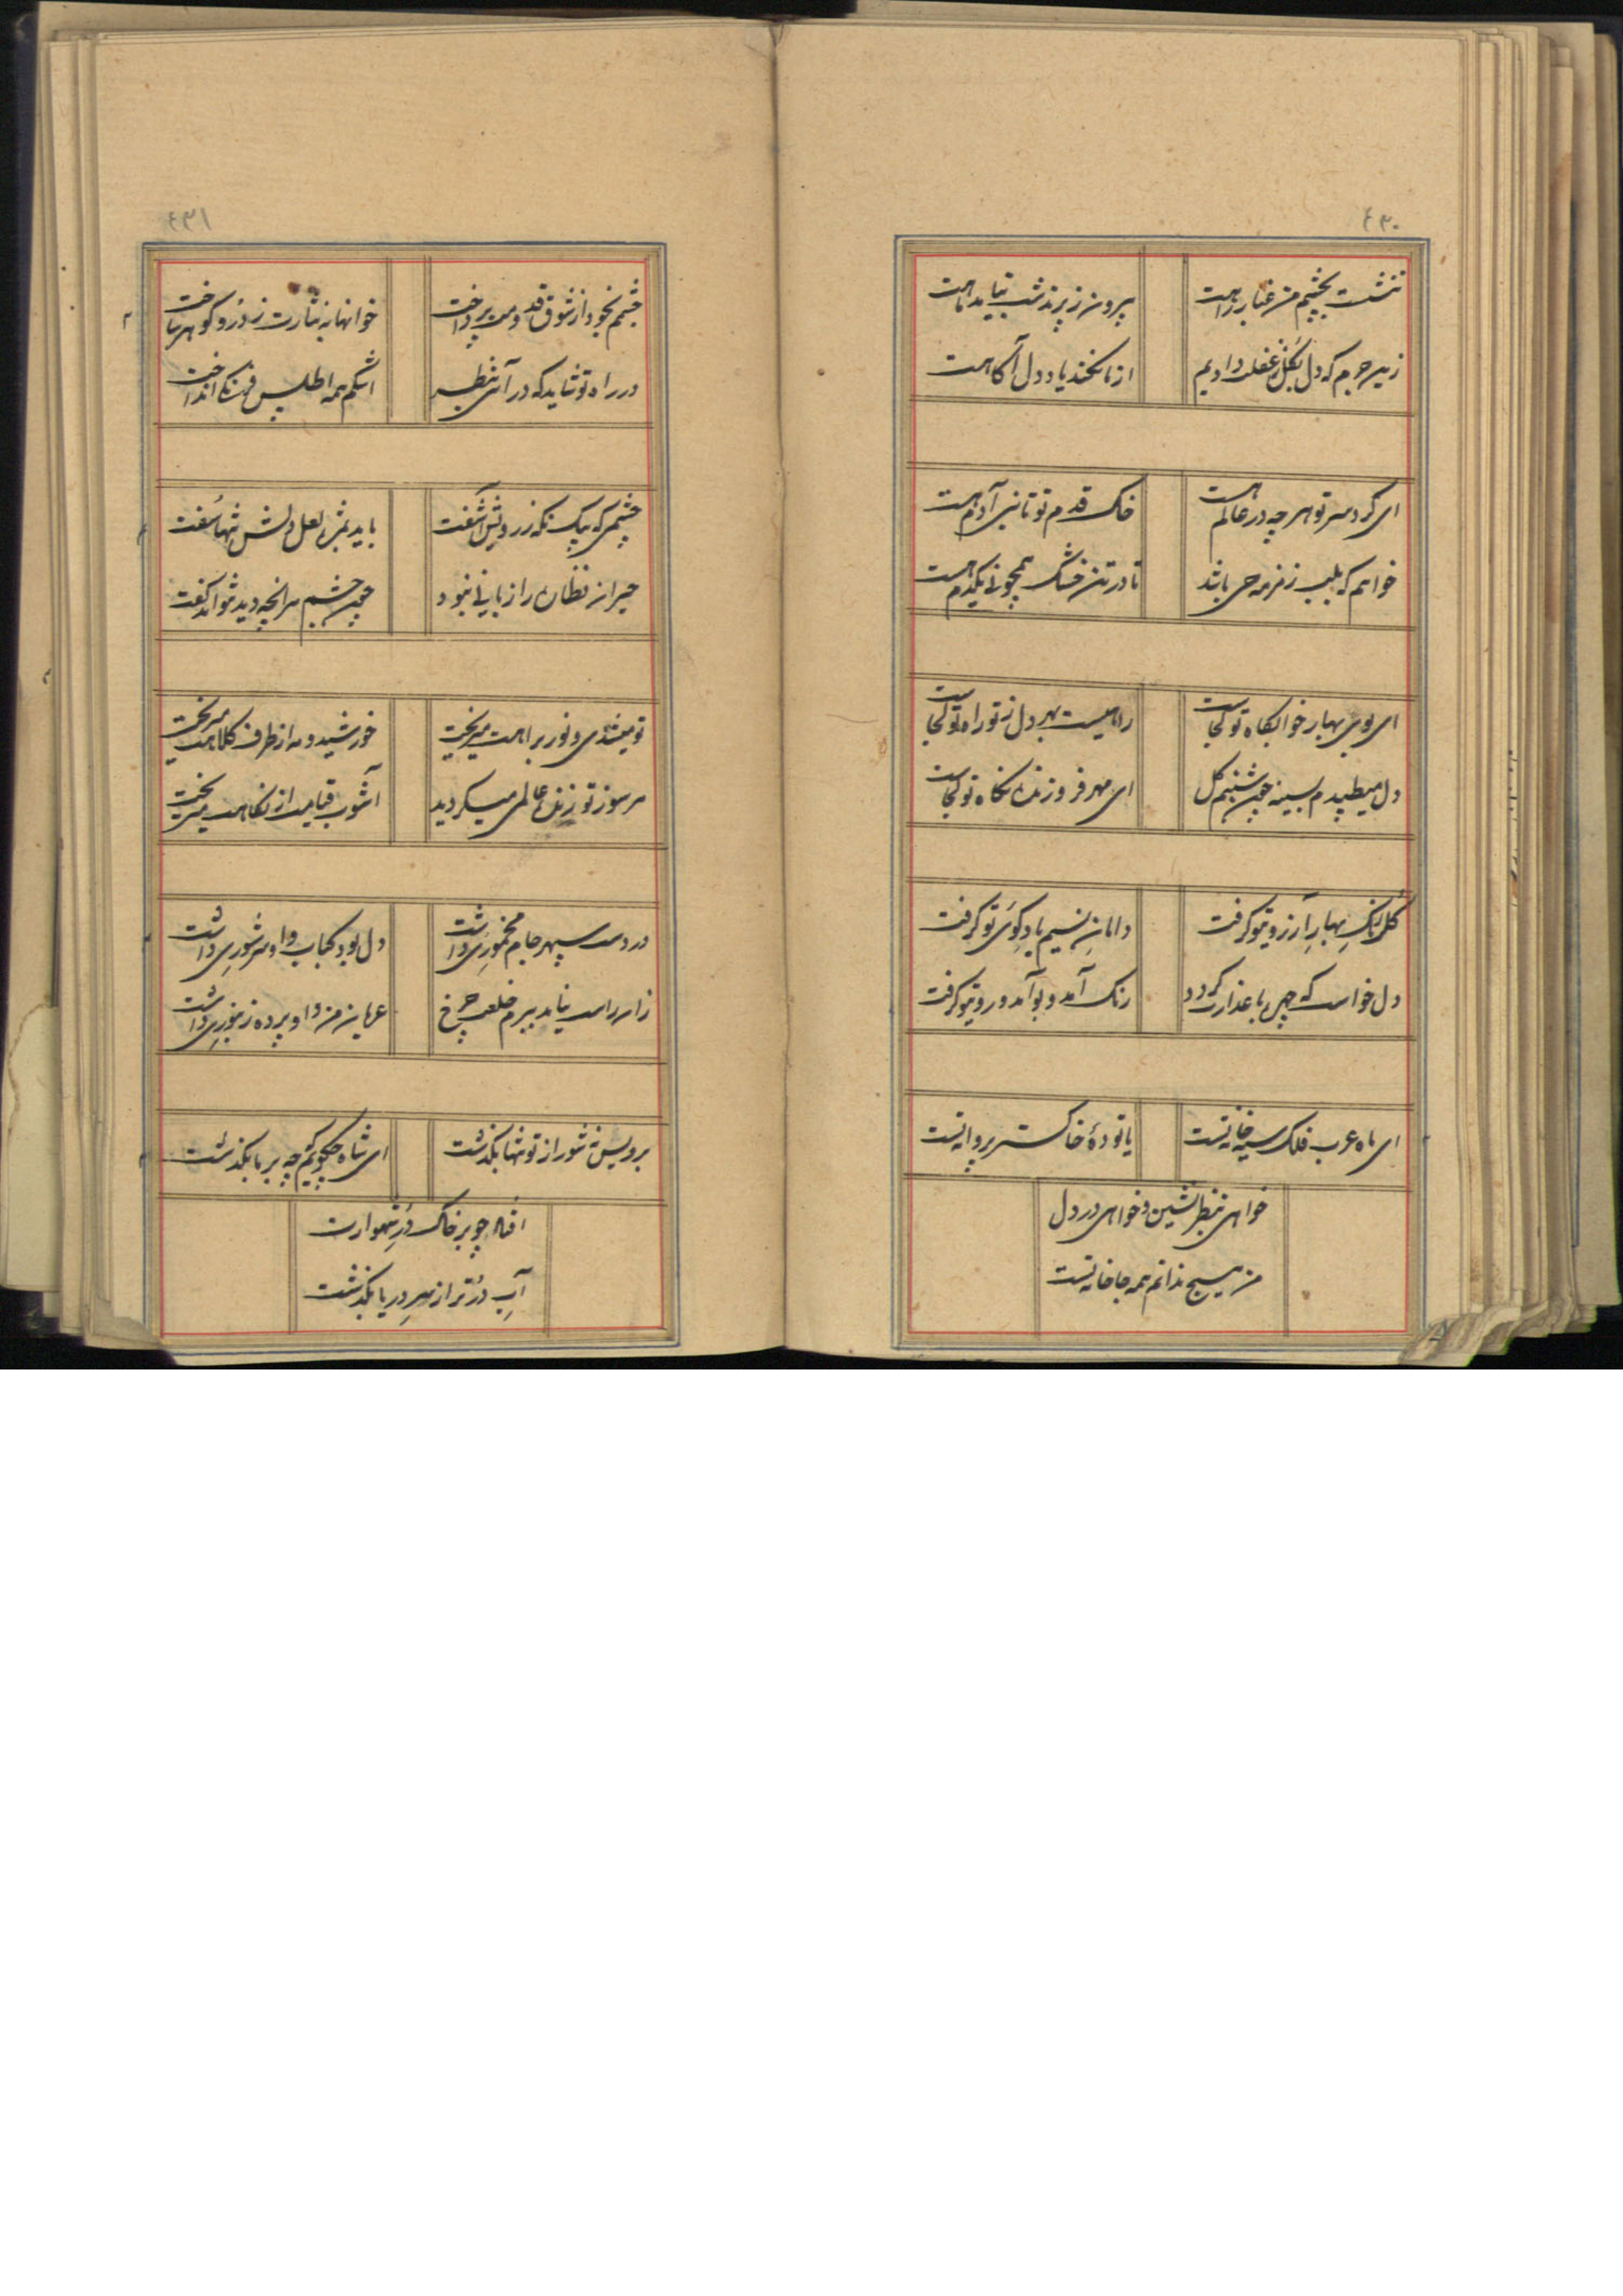 ۴۳۰
ننشست بچشم من غبار راهت
بیرون ز پرند شب نیامد ماهت
زین جرم که دل بشغل غفلت دادیم
از ما نکند یاد دل آکاهت
ای کرد سر تو هر چه در عالم هست
خاک قدم تو تا بنی آدم هست
خواهم که بلب زمزمه حی باشد
تا در تن خشک همچو نی یکدم هست
ای بوی بهار خوابکاه تو کجاست
راهیست بهر دل ز تو راه تو کجاست
دل میطپدم بسینه چون شبنم کل
ای مهر فروزنده نکاه تو کجاست
کلبانک بهار آرزوی تو کرفت
دامان نسیم یاد کوی تو کرفت
دل خواست که چون با عذارت کردد
رنک آمد و بو آمد و روی تو کرفت
ای ماه عرب فلک سیه خانه تست
یا تودهٔ خاکستر پروانه تست
خواهی بنظر نشین و خواهی در دل
من هیچ ندانم همه جا خانه تست
۴۳۱
چشمم بخود از شوق قدومت پرداخت
خوانها به نثارت ز در و کوهر ساخت
در راه تو شاید که در آئی بنظر
اشکم همه اطلس فرنک انداخت
چشمی که بیک نکه ز رویش آشفت
باید بمژه لعل ولش شبها سفت
حیران نظران را ز بانی نبود
چون چشم هر آنچه دید نتواند کفت
تو میشدی و نور براهت میریخت
خورشید و مه از طرف کلاهت میریخت
مرسوز تو زنده عالمی میکردید
آشوب قیامت از نکاهت میریخت
در دست سپهر جام مخموری داشت
دل بود کباب و او سر شوری داشت
زان راست نیامد ببرم خلعت چرخ
عریان من و او پرده زنبوری داشت
بر ویس نشور از تو تنها بکذشت
ای شاه چکویم چه بر ما بکذشت
افتاد چو بر خاک در شهوارت
آب در تر از سر دریا بکذشت